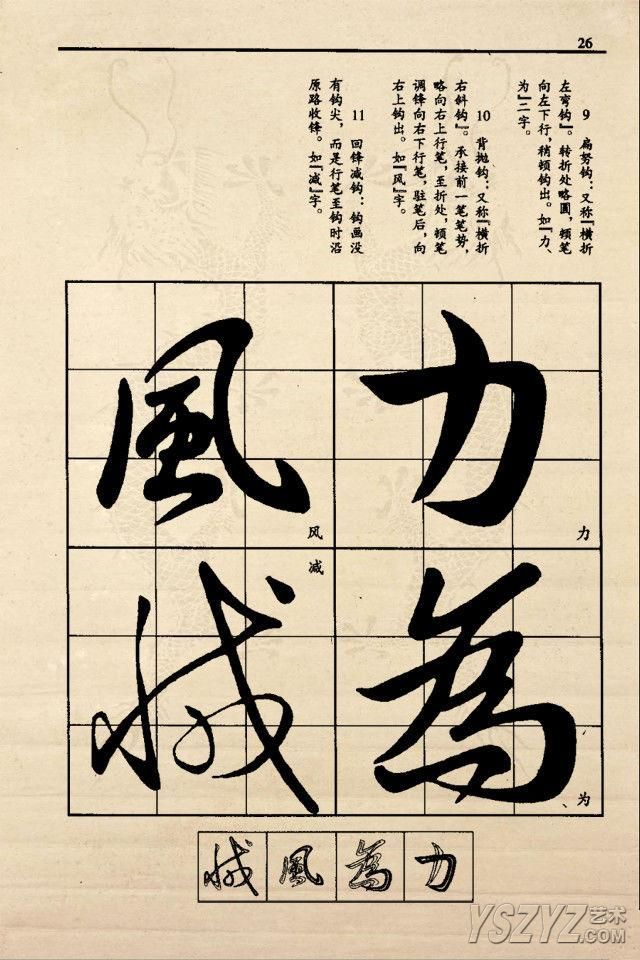 26
9 扁努钩：又称『横折
左弯钩』。转折处略圆，顿笔
向左下行，稍顿钩出。如『力、
为』二字。
10 背抛钩：又称『横折
右斜钩』。承接前一笔笔势，
略向右上行笔，至折处，顿笔
调锋向右下行笔，驻笔后，向
右上钩出。如『风』字。
11 回锋减钩：钩画没
有钩尖，而是行笔至钩时沿
原路收锋。如『减』字。
力
力
為
为
風
风
减
减
力
為
風
减
YSZYZ艺术
.COM